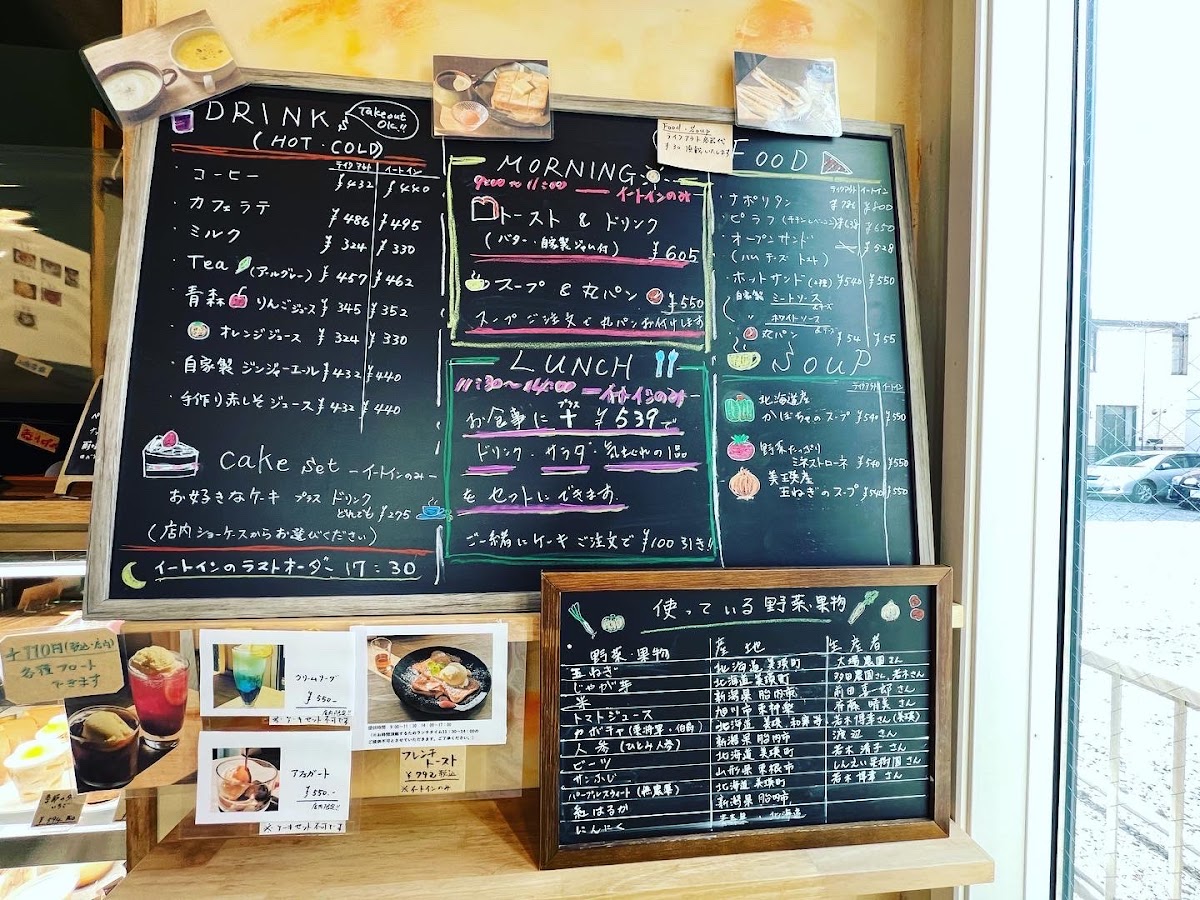 DRINKS
Takeout OK!!
(HOT・COLD)
テイクアウト イートイン
・コーヒー ¥432 ¥440
・カフェラテ ¥486 ¥495
・ミルク ¥324 ¥330
・Tea (アールグレー) ¥457 ¥462
・青森 りんごジュース ¥345 ¥352
・オレンジジュース ¥324 ¥330
・自家製 ジンジャーエール ¥432 ¥440
・手作り赤しそジュース ¥432 ¥440
cake set ーイートインのみー
お好きなケーキ プラス ドリンク
どれでも ¥275
(店内ショーケースからお選びください)
イートインのラストオーダー 17:30
MORNING
9:00〜11:00 ーイートインのみ
トースト & ドリンク
(バター・自家製ジャム付) ¥605
スープ & 丸パン ¥550
スープご注文で丸パンお付けします
LUNCH
11:30〜14:00 ーイートインのみー
プラス
お食事に + ¥539で
ドリンク・サラダ・気まぐれの1品
を セットにできます.
ご一緒にケーキご注文で¥100引き!!
Food・Soup
テイクアウト容器代
¥30 頂戴いたします
FOOD
テイクアウト イートイン
・ナポリタン ¥786 ¥800
・ピラフ (チキンorベーコン) ¥638 ¥650
・オープンサンド ¥528
(ハム チーズ トマト)
・ホットサンド(2種) ¥540 ¥550
自家製 ミートソース
&チーズ
〃 ホワイトソース
&チーズ
丸パン ¥54 ¥55
SOUP
テイクアウト イートイン
北海道産
かぼちゃのスープ ¥540 ¥550
野菜たっぷり
ミネストローネ ¥540 ¥550
美瑛産
玉ねぎのスープ ¥540 ¥550
使っている野菜・果物
野菜・果物 産地 生産者
玉ねぎ 北海道 美瑛町 大場農園さん
じゃが芋 北海道 美瑛町
米 新潟県 胎内市
トマトジュース 旭川市 東神楽
カボチャ 北海道 美瑛
人参 (ひとみ人参) 新潟県 胎内市 渡辺 さん
ビーツ 北海道 美瑛町
サンふじ 山形県 東根市
パープルスウィート (無農薬) 北海道 美瑛町
紅はるか 新潟県 胎内市
にんにく 北海道
+110円(税込・店内)
各種フロート
できます
クリームソーダ
¥550-
※ケーキセット不可です
アフォガート
¥550-
※ケーキセット不可です
フレンチ
トースト
¥792 税込
※イートインのみ